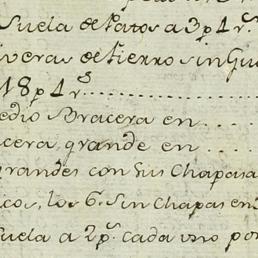 Suela de Patos a 3p 1 rs
veras de fierro sin Gu
18p 1 rs
edio Bracera en
cera, grande en
grandes con sus Chapas a
cos, los 6. sin Chapas en
uela a 2ps. cada uno por